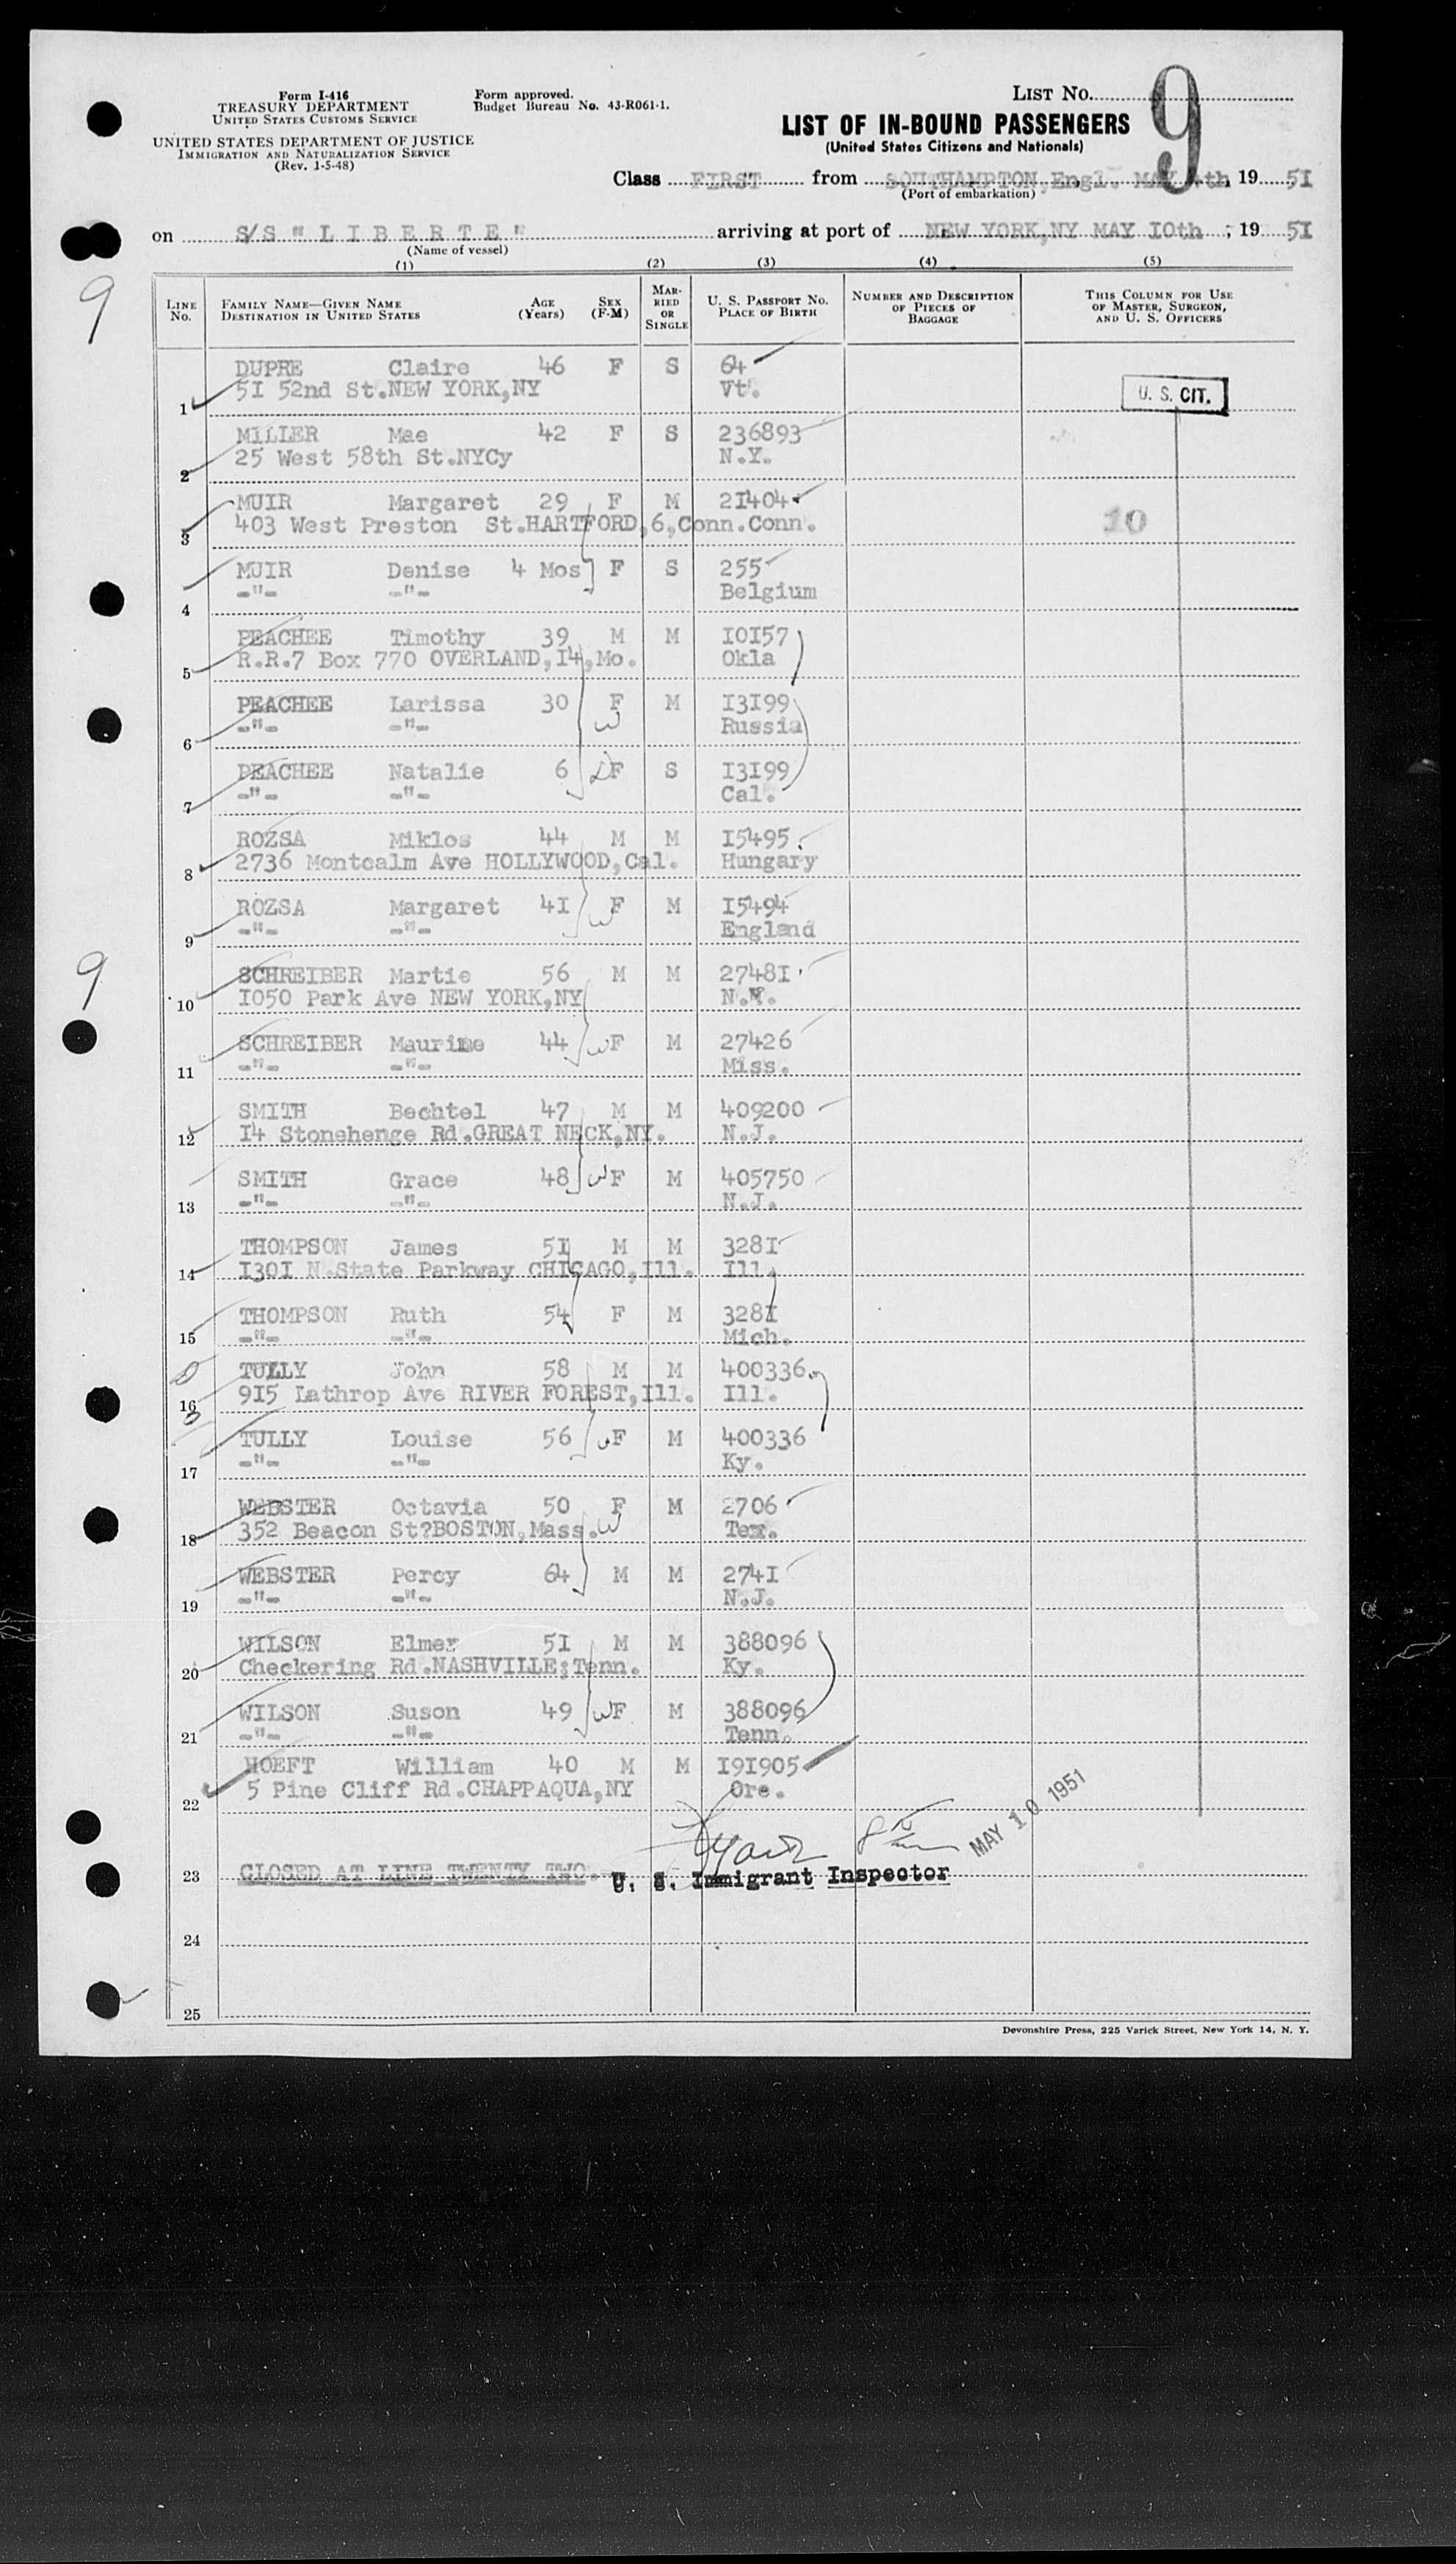 Form I-416
TREASURY DEPARTMENT
UNITED STATES CUSTOMS SERVICE
UNITED STATES DEPARTMENT OF JUSTICE
IMMIGRATION AND NATURALIZATION SERVICE
(Rev. 1-5-48)
Form approved.
Budget Bureau No. 43-R061-1.
LIST No. 9
LIST OF IN-BOUND PASSENGERS
(United States Citizens and Nationals)
Class FIRST from SOUTHAMPTON, Engl. MAY th, 19 51
(Port of embarkation)
on S/S "L I B E R T E" arriving at port of NEW YORK,NY MAY IOth , 19 5I
(Name of vessel)
(1) (2) (3) (4) (5)
LINE No. FAMILY NAME—GIVEN NAME DESTINATION IN UNITED STATES AGE (Years) SEX (F-M) MARRIED OR SINGLE U. S. PASSPORT No. PLACE OF BIRTH NUMBER AND DESCRIPTION OF PIECES OF BAGGAGE THIS COLUMN FOR USE OF MASTER, SURGEON, AND U. S. OFFICERS
9
DUPRE Claire 46 F S 64
1 5I 52nd St.NEW YORK,NY Vt. U. S. CIT.
MILLER Mae 42 F S 236893
2 25 West 58th St.NYCy N.Y.
MUIR Margaret 29 F M 2I404
3 403 West Preston St.HARTFORD,6,Conn.Conn. 10
MUIR Denise 4 Mos F S 255
4 -"- -"- Belgium
PEACHEE Timothy 39 M M IOI57
5 R.R.7 Box 770 OVERLAND,I4,Mo. Okla
PEACHEE Larissa 30 F M I3I99
6 -"- -"- W Russia
PEACHEE Natalie 6 D F S I3I99
7 -"- -"- Cal.
ROZSA Miklos 44 M M I5495
8 2736 Montcalm Ave HOLLYWOOD,Cal. Hungary
ROZSA Margaret 4I W F M I5494
9 -"- -"- England
9
SCHREIBER Martie 56 M M 2748I
10 I050 Park Ave NEW YORK,NY N.Y.
SCHREIBER Maurine 44 W F M 27426
11 -"- -"- Miss.
SMITH Bechtel 47 M M 409200
12 I4 Stonehenge Rd.GREAT NECK,NY. N.J.
SMITH Grace 48 W F M 405750
13 -"- -"- N.J.
THOMPSON James 5I M M 328I
14 I30I N.State Parkway CHICAGO,Ill. Ill.
THOMPSON Ruth 54 F M 328I
15 -"- -"- Mich.
TULLY John 58 M M 400336
16 9I5 Lathrop Ave RIVER FOREST,Ill. Ill.
TULLY Louise 56 W F M 400336
17 -"- -"- Ky.
WEBSTER Octavia 50 F M 2706
18 352 Beacon St?BOSTON,Mass. W Tex.
WEBSTER Percy 64 M M 274I
19 -"- -"- N.J.
WILSON Elmer 5I M M 388096
20 Checkering Rd.NASHVILLE;Tenn. Ky.
WILSON Suson 49 W F M 388096
21 -"- -"- Tenn.
HOEFT William 40 M M I9I905
22 5 Pine Cliff Rd.CHAPPAQUA,NY Ore.
MAY 10 1951
23 CLOSED AT LINE TWENTY TWO.- U. S. Immigrant Inspector
24
25
Devonshire Press, 225 Varick Street, New York 14, N. Y.